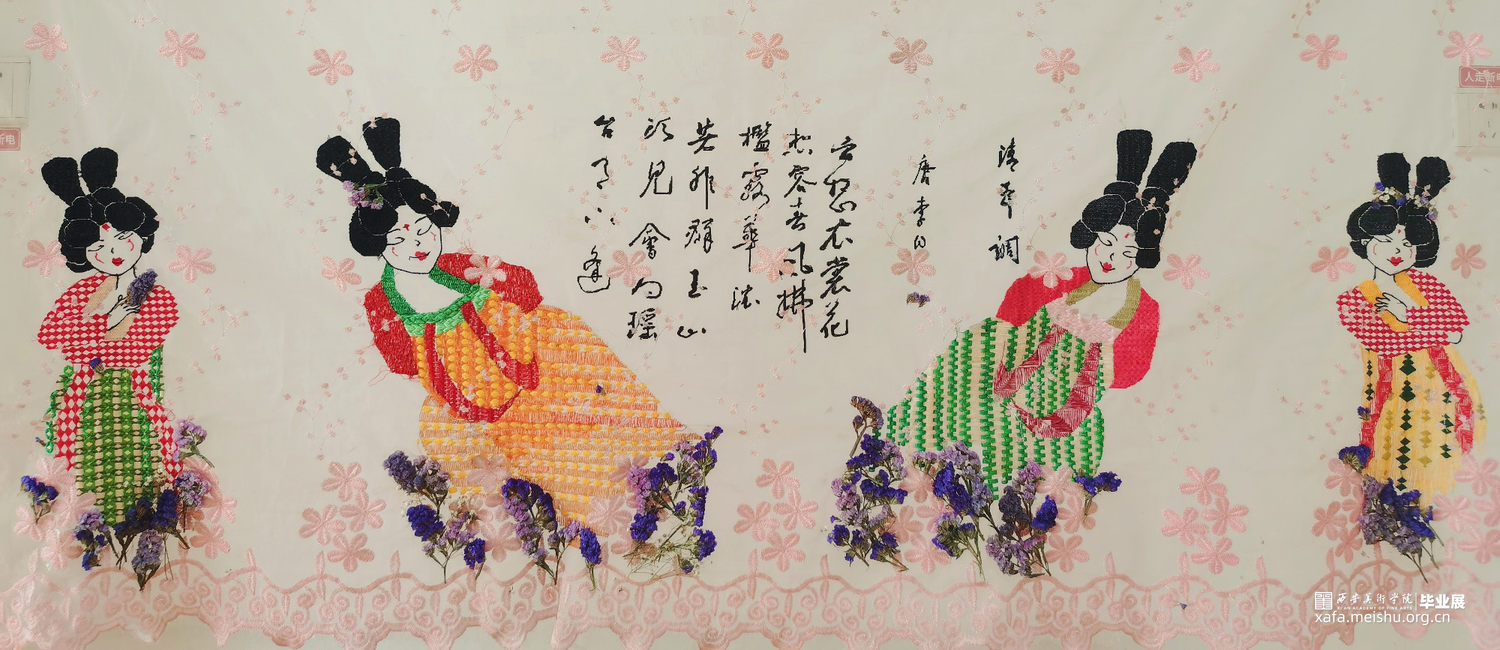 清平調
唐李白
云想衣裳花
想容春风拂
檻露華濃
若非群玉山
头見會向瑶
台月下逢
人走断电
断电
西安美術学院
XI'AN ACADEMY OF FINE ARTS
毕业展
xafa.meishu.org.cn